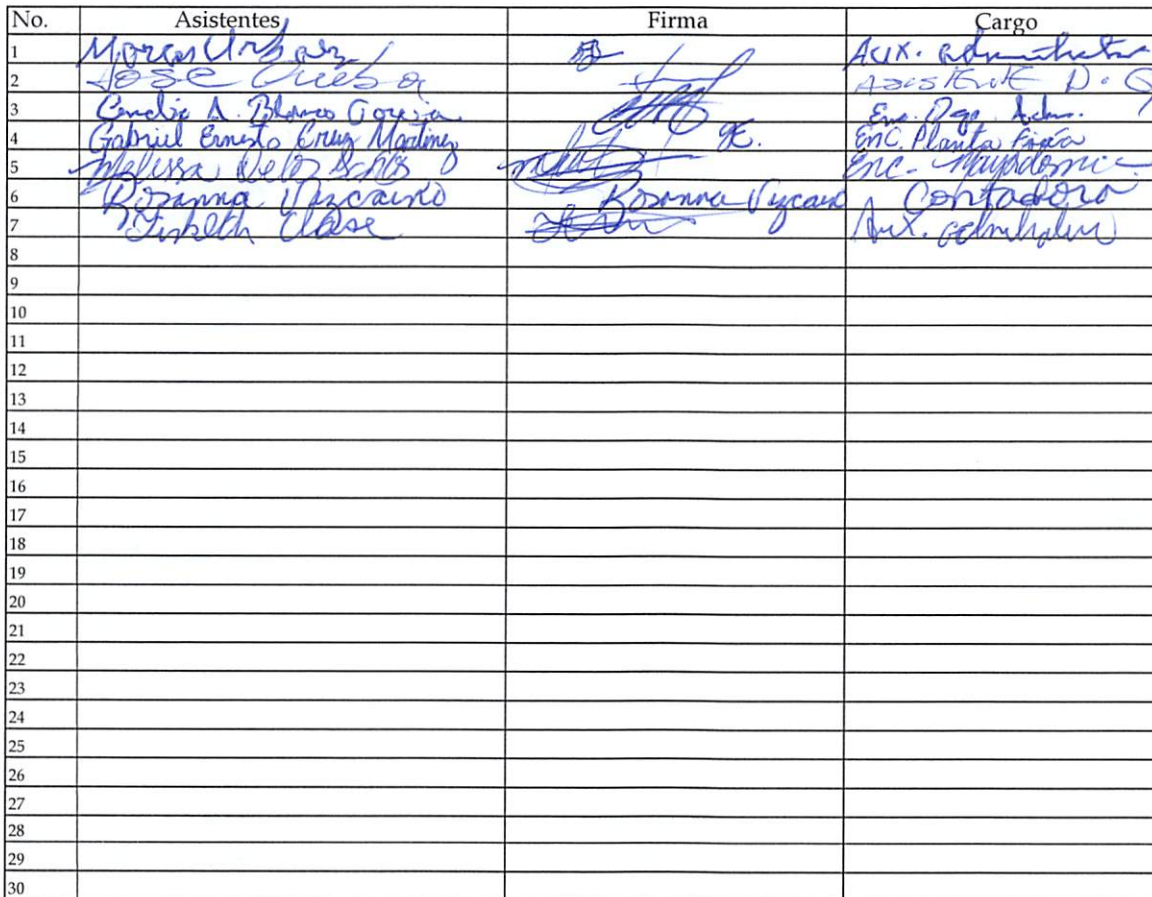 No. Asistentes Firma Cargo
1 Marcos Urbaez Aux. administrativo
2 Jose Cueba ASISTENTE D. G
3 A. Blanco Garcia Enc. Dep. Adm.
4 Gabriel Ernesto Cruz Martinez GE. Enc. Planta Física
5 Melissa De los Santos Enc. Mayordomia
6 Rosanna Vizcaino Rosanna Vizcaino Contadora
7 Lisbeth Clase Aux. administrativa
8
9
10
11
12
13
14
15
16
17
18
19
20
21
22
23
24
25
26
27
28
29
30